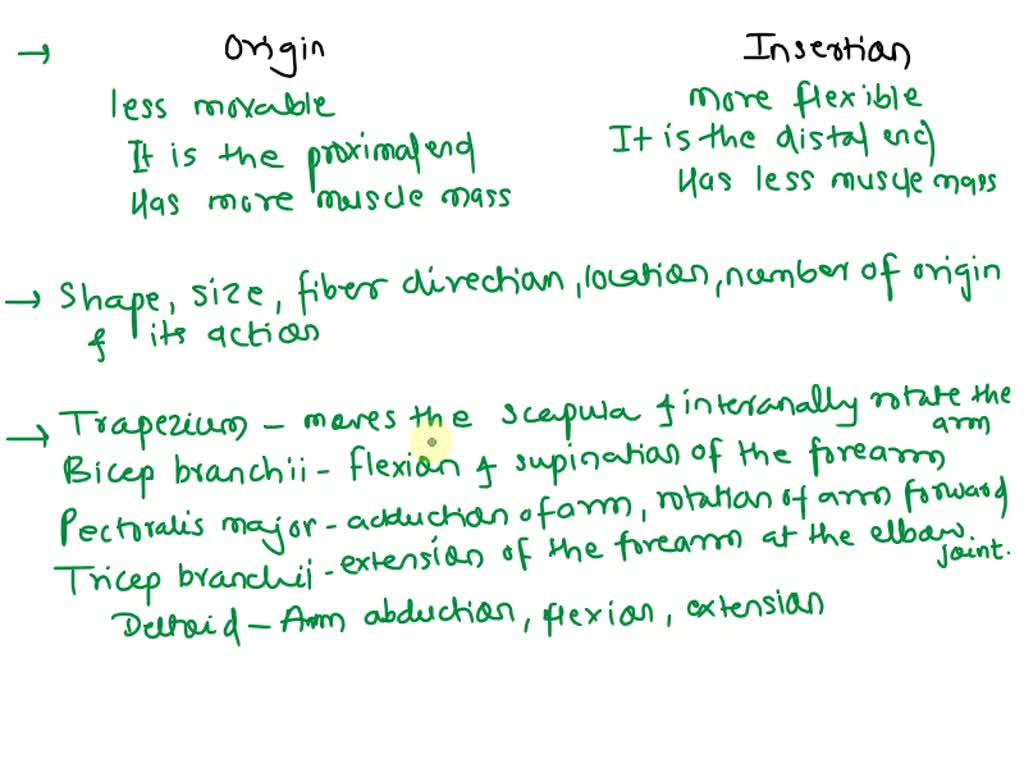 → Origin Insertion
less movable more flexible
It is the proximal end It is the distal end
Has more muscle mass Has less muscle mass
→ Shape, size, fiber direction, location, number of origin
& its action
→ Trapezium - moves the scapula & interanally rotate the
arm
Bicep branchii - flexion & supination of the forearm
Pectoralis major - adduction of arm, rotation of arm forward
Tricep branchii - extension of the forearm at the elbow
joint.
Deltoid - Arm abduction, flexion, extension